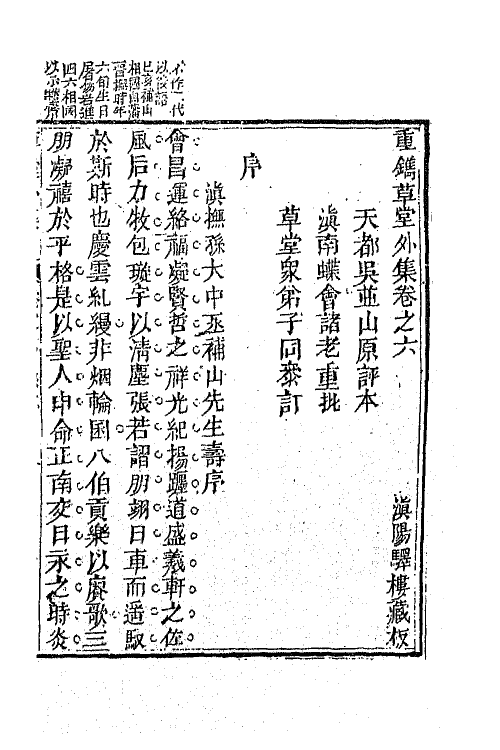 重鐫草堂外集卷之六
滇陽驛樓藏板
天都吳並山原評本
滇南蝶會諸老重批
草堂衆弟子同叅訂
序
滇撫孫大中丞補山先生壽序
會昌運絡福凝賢哲之祥光紀揚躔道盛羲軒之佐
風后力牧包璇宇以清塵張若謵朋翊日車而遥馭
於斯時也慶雲糺縵非烟輪囷八伯貢樂以賡歌三
朋凝禧於平格是以聖人申命正南交日永之時炎
不作一代
以後語
巳亥補山
相國自滇
晉撫時年
六旬生日
屠揚若進
四六相國
以示